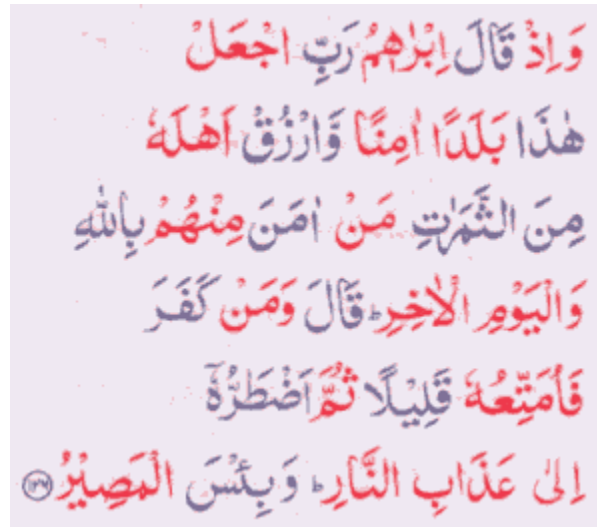 وَاِذْ قَالَ اِبْرٰهٖمُ رَبِّ اجْعَلْ
هٰذَا بَلَدًا اٰمِنًا وَّارْزُقْ اَهْلَهٗ
مِنَ الثَّمَرٰتِ مَنْ اٰمَنَ مِنْهُمْ بِاللّٰهِ
وَالْيَوْمِ الْاٰخِرِ ؕ قَالَ وَمَنْ كَفَرَ
فَاُمَتِّعُهٗ قَلِيْلًا ثُمَّ اَضْطَرُّهٗۤ
اِلٰى عَذَابِ النَّارِ ؕ وَبِئْسَ الْمَصِيْرُ ﴿۱۲۶﴾